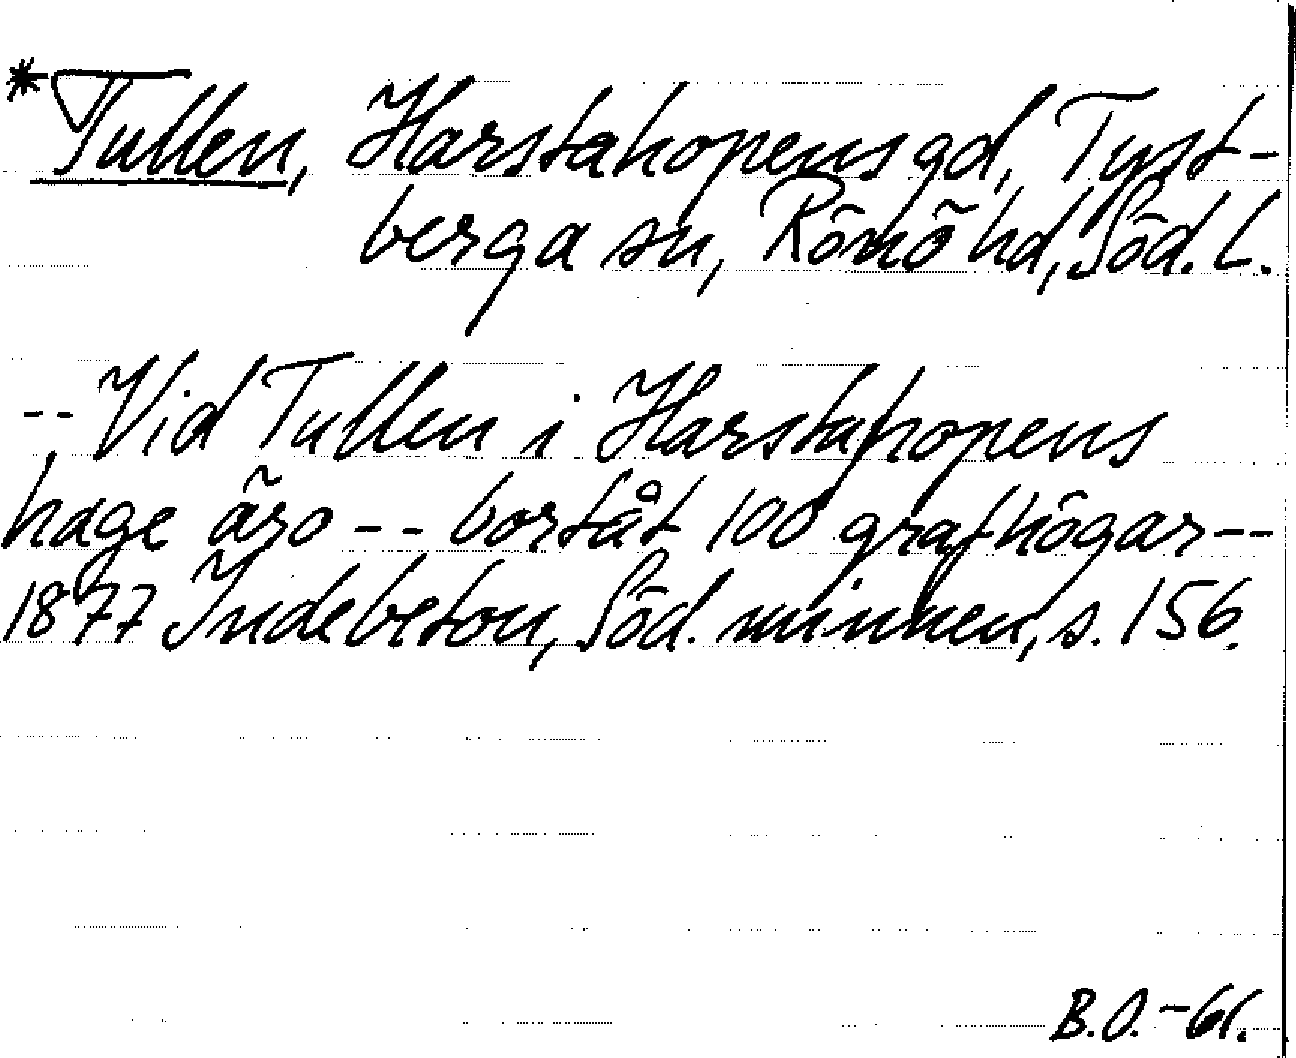 *Tullen, Harstahopens gd, Tyst-
berga sn, Rönö hd, Söd. L.
-- Vid Tullen i Harstahopens
hage äro -- bortåt 100 grafhögar --
1877 Indebetou, Söd. minnen, s. 156.
B.O. -61.